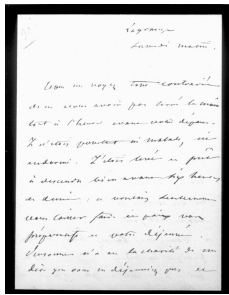 Lagrange
Samedi matin.
Vous me voyez tout contrarié
de ne vous avoir pas serré la main
tout à l'heure avant votre départ.
Je n'étais pourtant ni malade, ni
endormi. J'étais levé et prêt
à descendre bien avant sept heures
et demie; je voulais seulement
vous laisser faire en paix vos
préparatifs et votre déjeuner.
Personne n'a eu la charité de me
dire que vous ne déjeuniez pas et